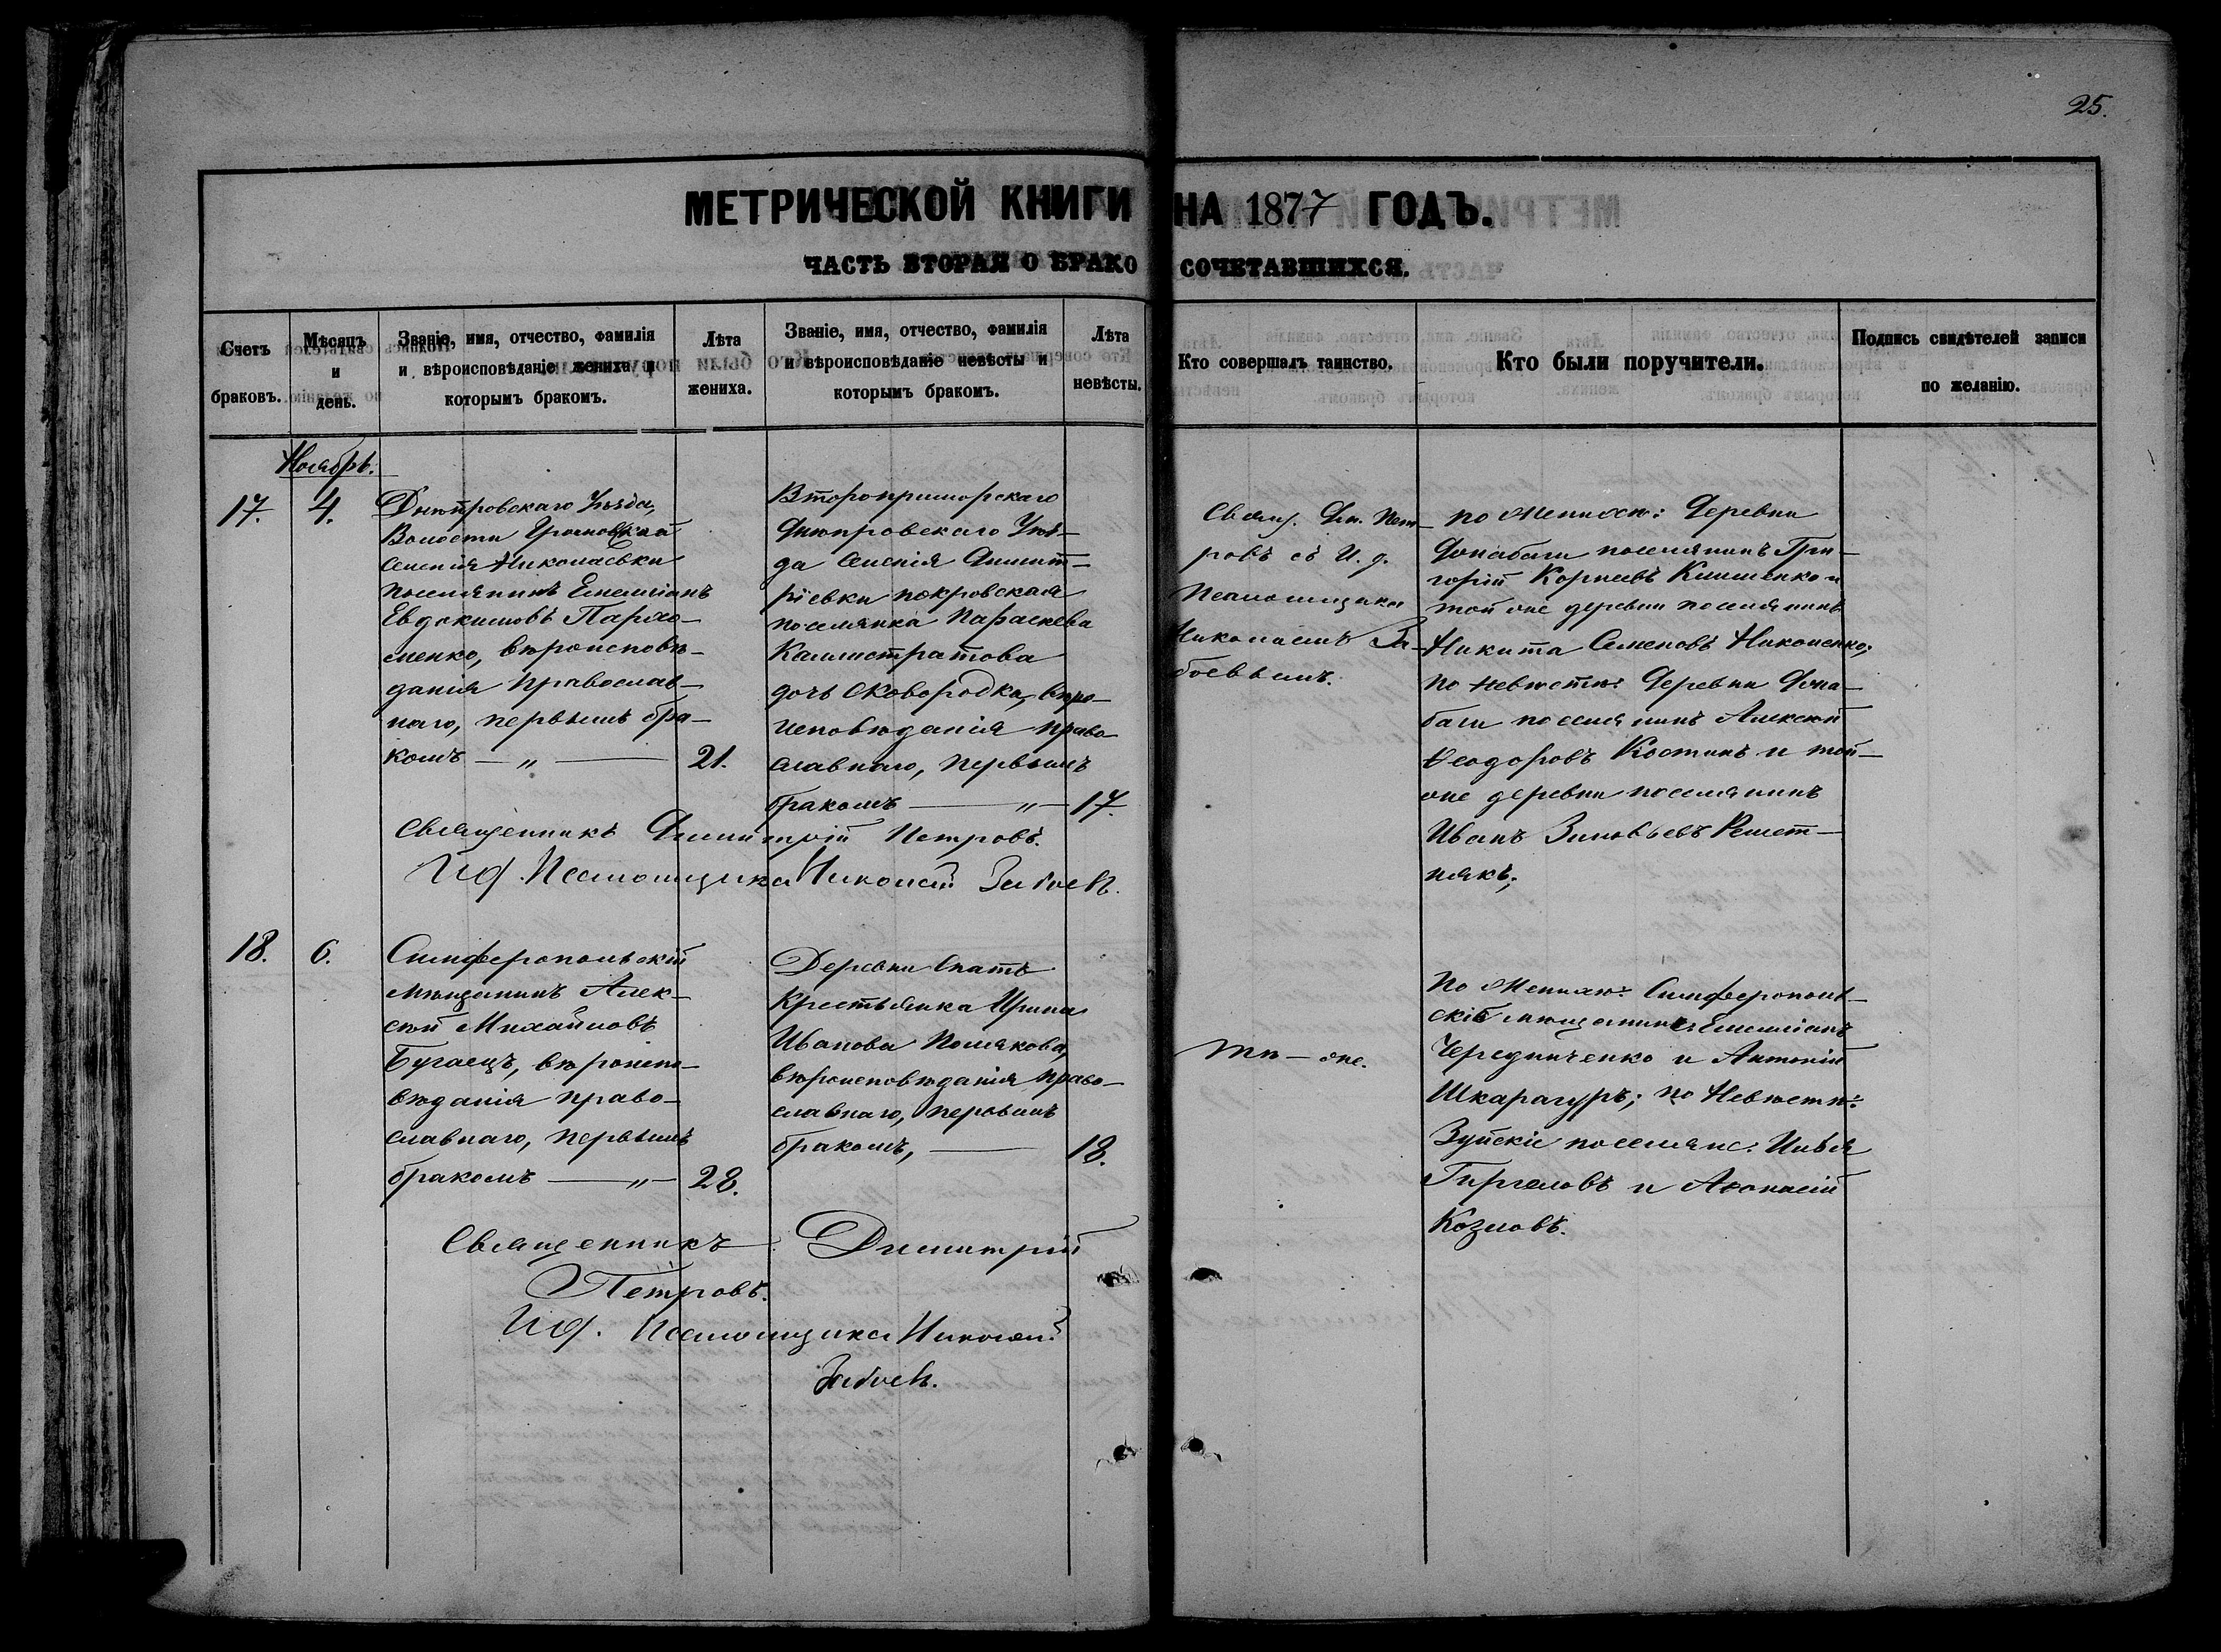 25.
МЕТРИЧЕСКОЙ КНИГИ НА 1877 ГОДЪ.
ЧАСТЬ ВТОРАЯ О БРАКОСОЧЕТАВШИХСЯ.
Счетъ
браковъ.
Мѣсяцъ
и
день.
Званіе, имя, отчество, фамилія
и вѣроисповѣданіе жениха и
которымъ бракомъ.
Лѣта
жениха.
Званіе, имя, отчество, фамилія
и вѣроисповѣданіе невѣсты и
которымъ бракомъ.
Лѣта
невѣсты.
Кто совершалъ таинство.
Кто были поручители.
Подпись свидѣтелей записи
по желанію.
Ноябрь.
17.
4.
Днѣпровскаго Уѣзда,
Волости
селенія Николаевки
поселянинъ Емеліанъ
Евдокимовъ Пархо-
менко, вѣроисповѣ-
данія православ-
наго, первымъ бра-
комъ — „ —
21.
Днѣпровскаго Уѣз-
да селенія Димит-
ріевки покровская
поселянка Параскева
Каллистратова
дочь Сковородка, вѣро-
исповѣданія право-
славнаго, первымъ
бракомъ — „ —
17.
Свящ. Дм. Пет-
ровъ съ И. д.
Псаломщика
Николаемъ За-
боевымъ.
по Женихѣ: Деревни
поселянинъ Гри-
горій Корнеевъ Клименко и
той же деревни поселянинъ
Никита Семеновъ Никоненко;
по Невѣстѣ: Деревни
поселянинъ Алексѣй
Ѳеодоровъ Костинъ и той-
же деревни поселянинъ
Иванъ Зиновьевъ Решет-
някъ;
Священникъ Димитрій Петровъ.
Ид. Псаломщика Николай Забоевъ.
18.
6.
Симферопольскій
мѣщанинъ Алек-
сѣй Михайловъ
Бугаецъ, вѣроиспо-
вѣданія право-
славнаго, первымъ
бракомъ — „ —
28.
Деревни Спатъ
Крестьянка Ирина
Иванова Полякова,
вѣроисповѣданія право-
славнаго, первымъ
бракомъ, —
18.
Тѣ-же.
По Женихѣ: Симферополь-
скіе мѣщане Емеліанъ
Чередниченко и Антоній
Шкарагуръ; по Невѣстѣ:
Зуйскіе поселяне: Илья
и Аѳанасій
Козловъ.
Священникъ Димитрій
Петровъ.
Ид. Псаломщика Николай
Забоевъ.